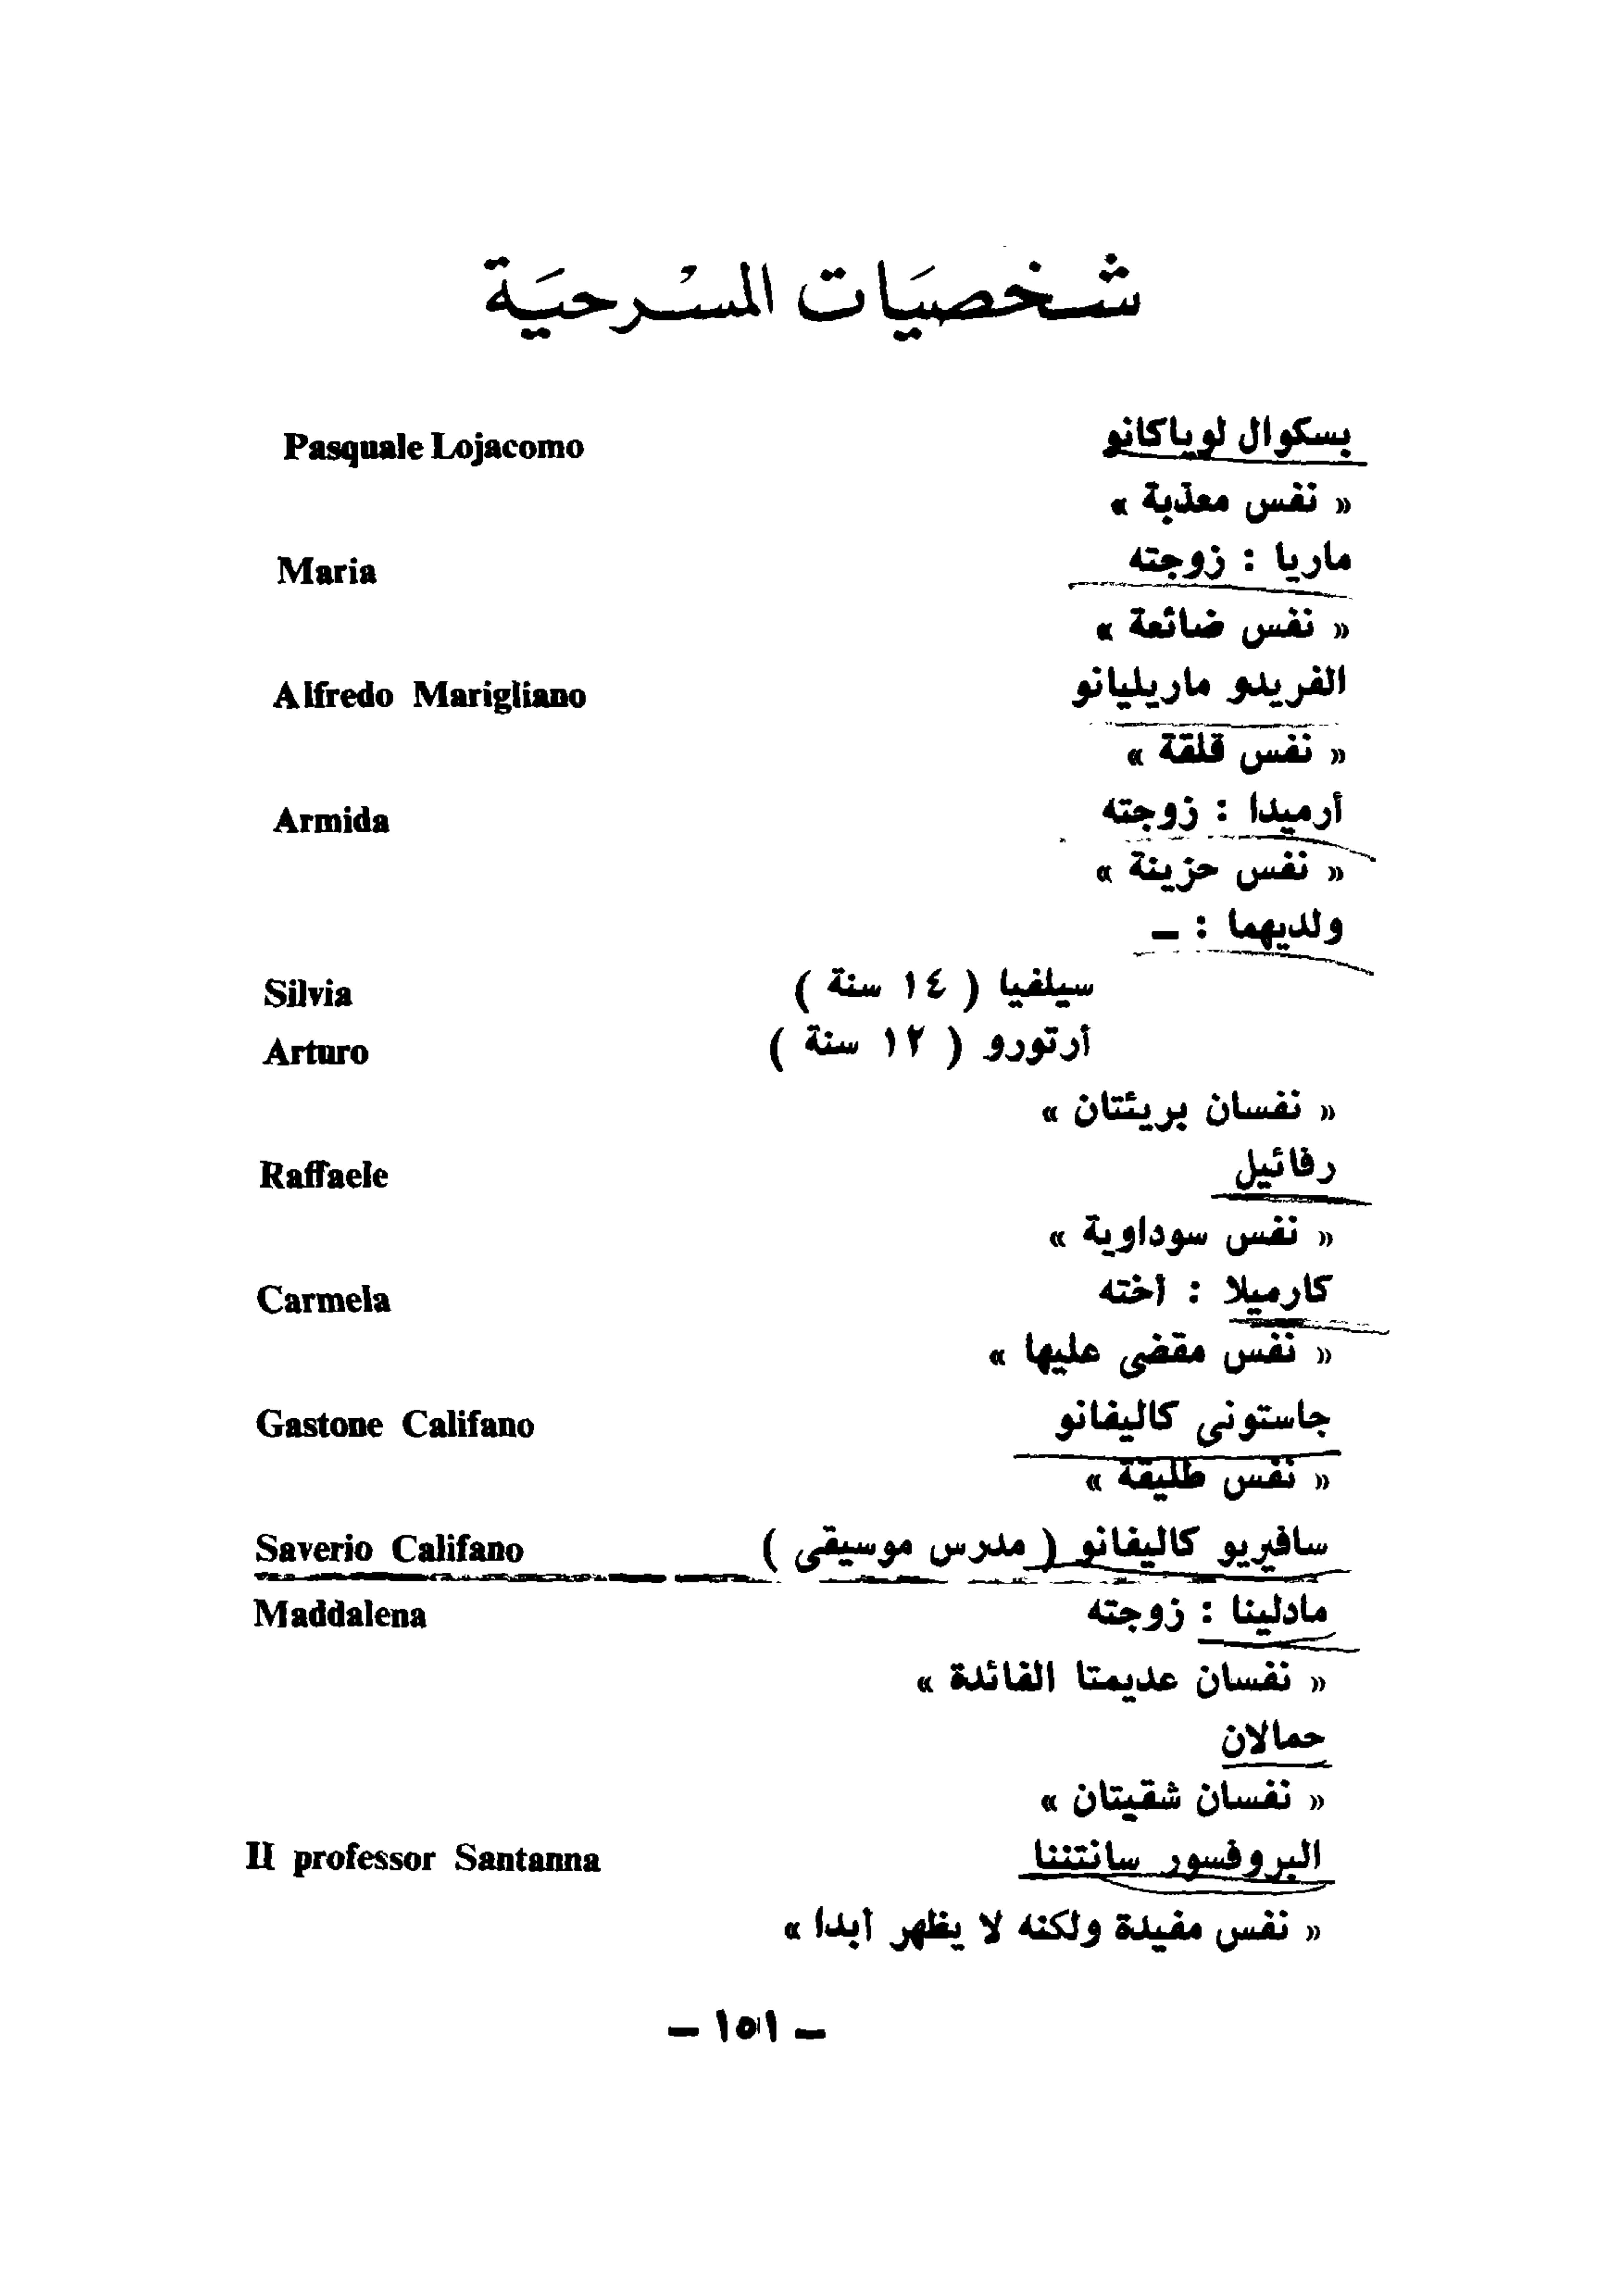 شخصيَات المسْرحيَة
بسكوال لوياكانو Pasquale Lojacomo
« نفس معذبة »
ماريا : زوجته Maria
« نفس ضائعة »
الفريدو ماريليانو Alfredo Marigliano
« نفس قلقة »
أرميدا : زوجته Armida
« نفس حزينة »
ولديهما : ــ
سيلفيا ( ١٤ سنة ) Silvia
أرتورو ( ١٢ سنة ) Arturo
« نفسان بريئتان »
رفائيل Raffaele
« نفس سوداوية »
كارميلا : أخته Carmela
« نفس مقضى عليها »
جاستونى كاليفانو Gastone Califano
« نفس طليقة »
سافيريو كاليفانو ( مدرس موسيقى ) Saverio Califano
مادلينا : زوجته Maddalena
« نفسان عديمتا الفائدة »
حمالان
« نفسان شقيتان »
البروفسور سانتننا Il professor Santanna
« نفس مفيدة ولكنه لا يظهر أبدا »
ــ ١٥١ ــ